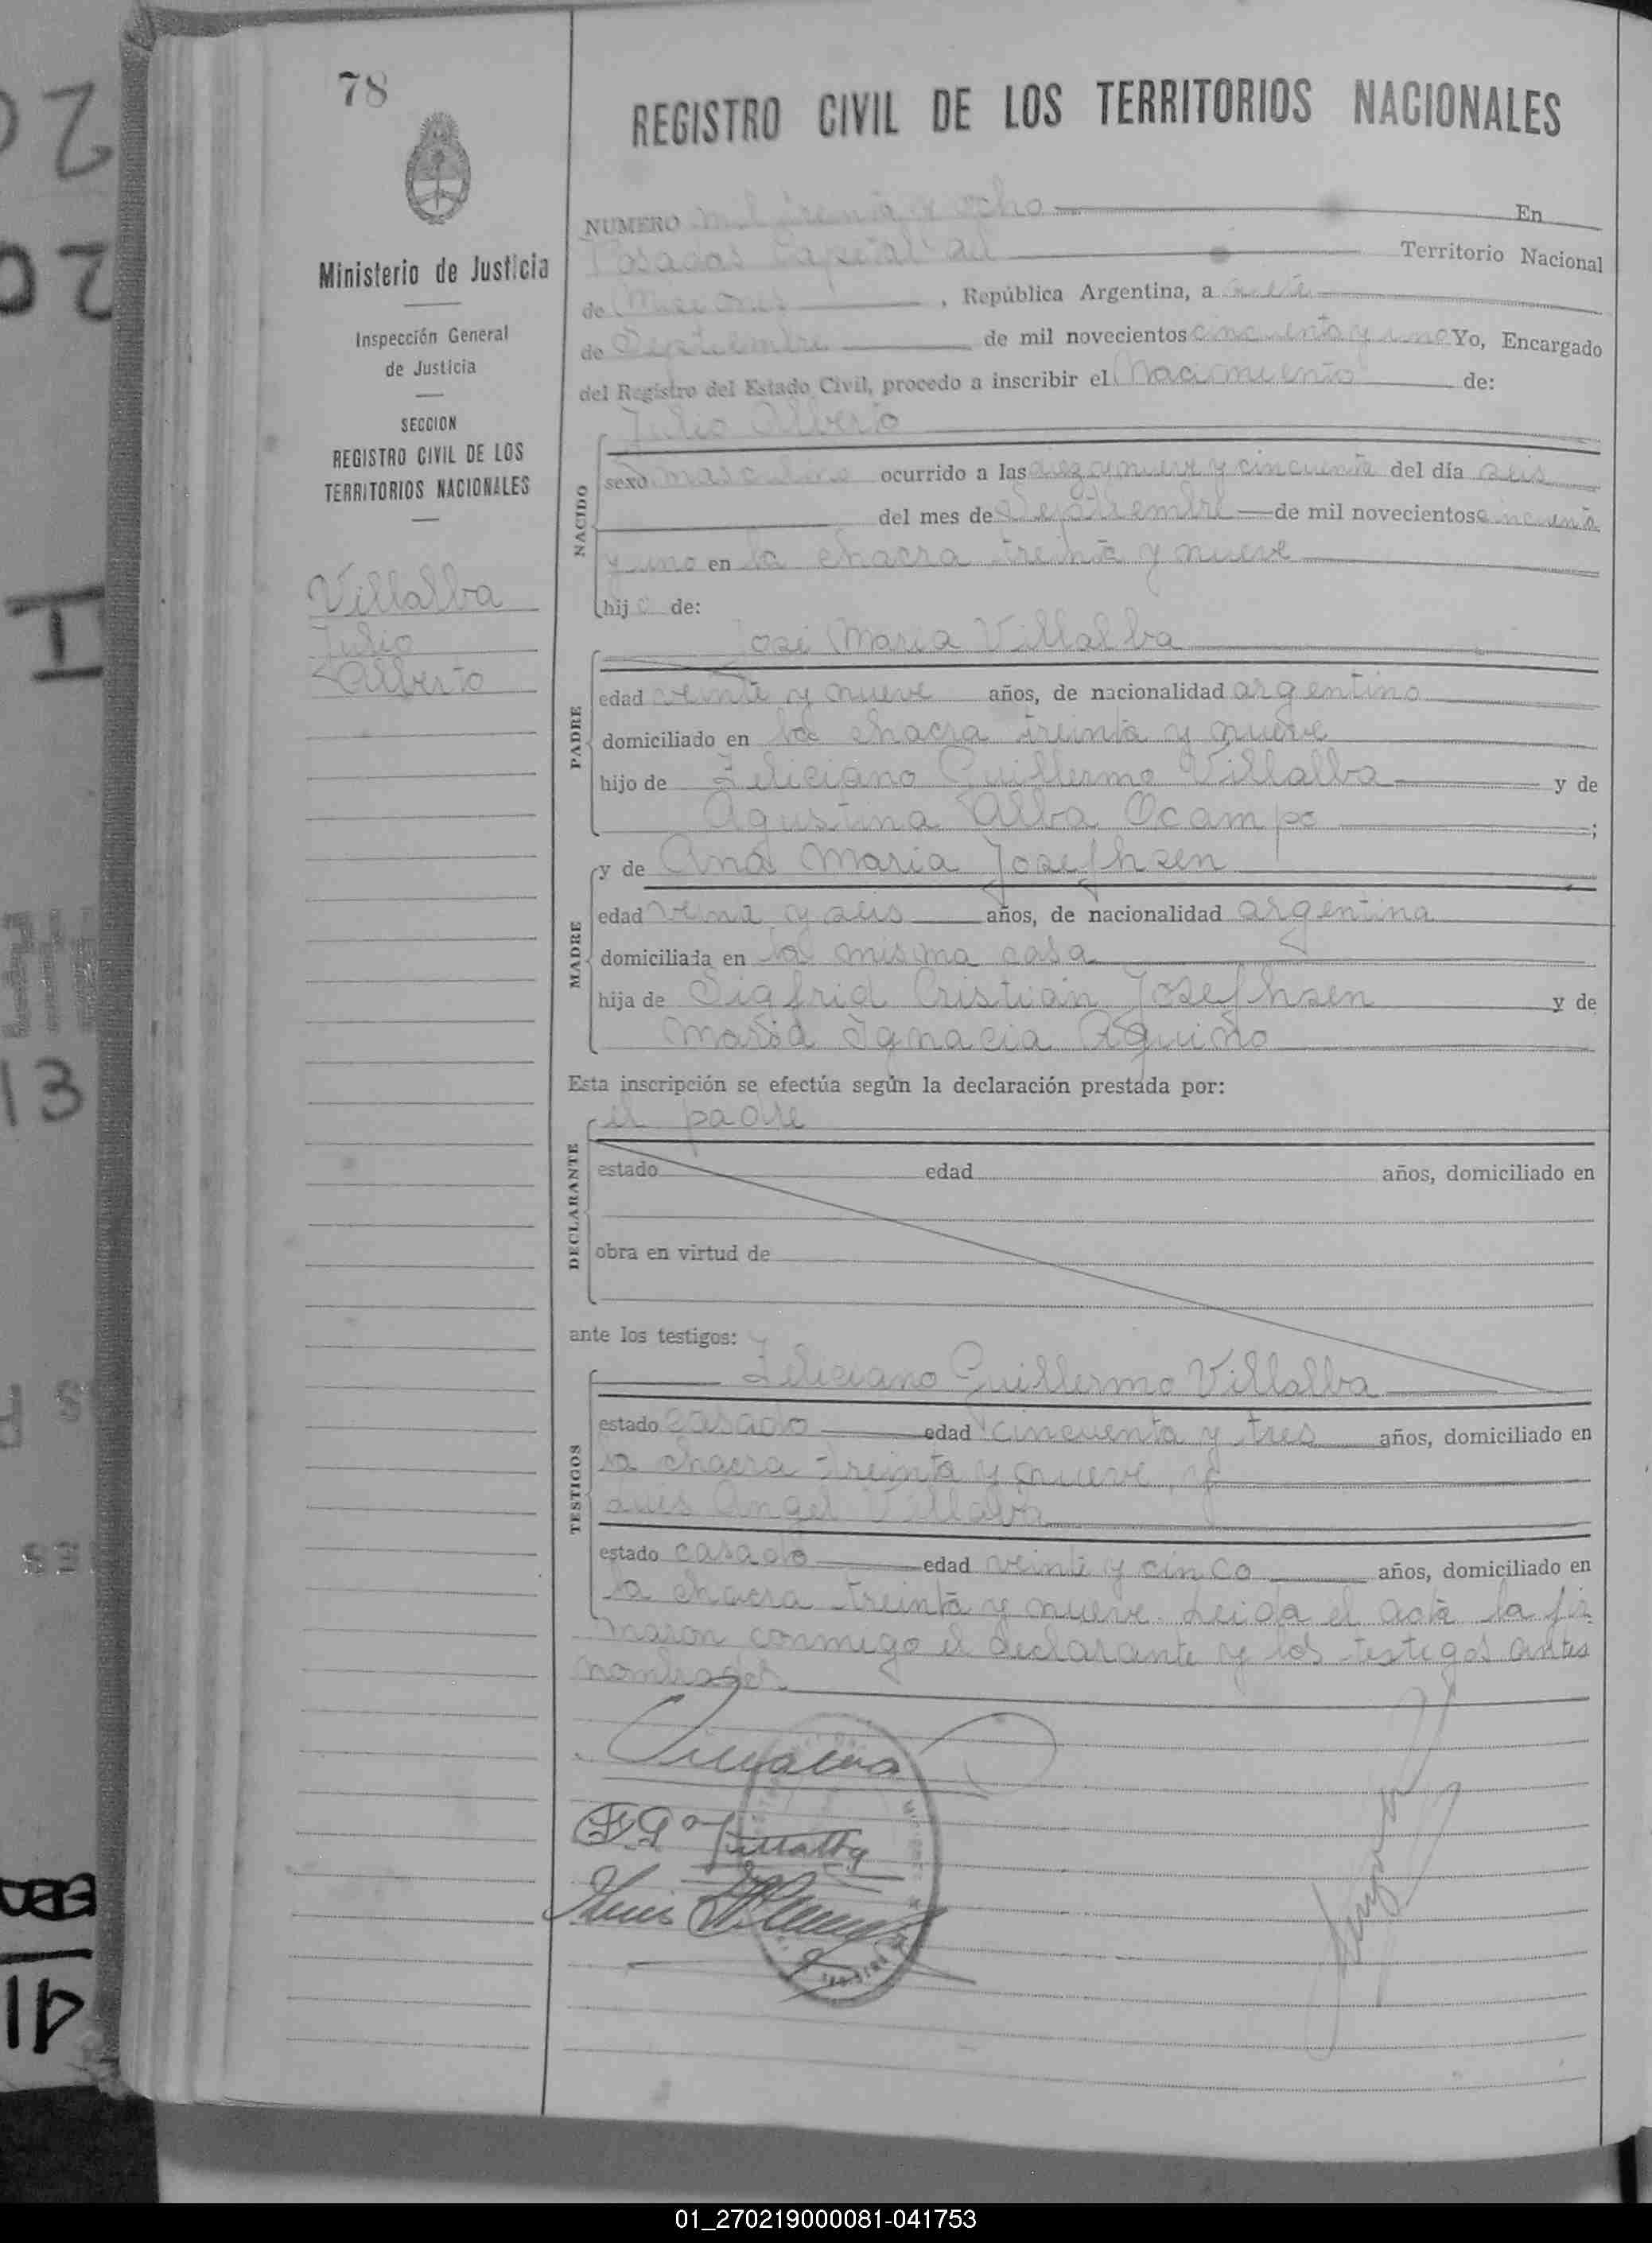 78
REGISTRO CIVIL DE LOS TERRITORIOS NACIONALES
Ministerio de Justicia
Inspección General
de Justicia
SECCION
REGISTRO CIVIL DE LOS
TERRITORIOS NACIONALES
Villalba
Julio
Alberto
NUMERO mil treinta y ocho En
Posadas Capital del Territorio Nacional
de Misiones, República Argentina, a siete
de Septiembre de mil novecientos cincuenta y uno Yo, Encargado
del Registro del Estado Civil, procedo a inscribir el Nacimiento de:
Julio Alberto
NACIDO
sexo masculino ocurrido a las diez y nueve y cincuenta del día seis
del mes de Septiembre de mil novecientos cincuenta
y uno en la chacra treinta y nueve
hijo de:
José Maria Villalba
PADRE
edad veinte y nueve años, de nacionalidad argentino
domiciliado en la chacra treinta y nueve
hijo de Feliciano Guillermo Villalba y de
Agustina Alba Ocampo;
y de Ana Maria Josephsen
MADRE
edad veinte y seis años, de nacionalidad argentina
domiciliada en la misma casa
hija de Sigfrid Cristian Josephsen y de
Maria Ignacia Aquino
Esta inscripción se efectúa según la declaración prestada por:
el padre
DECLARANTE
estado edad años, domiciliado en
obra en virtud de
ante los testigos:
Feliciano Guillermo Villalba
TESTIGOS
estado casado edad cincuenta y tres años, domiciliado en
la chacra treinta y nueve y
Luis Angel Villalba
estado casado edad veinte y cinco años, domiciliado en
la chacra treinta y nueve. Leida el acta la fir
maron conmigo el declarante y los testigos antes
nombrados.
F G Villalba
Luis
01_270219000081-041753